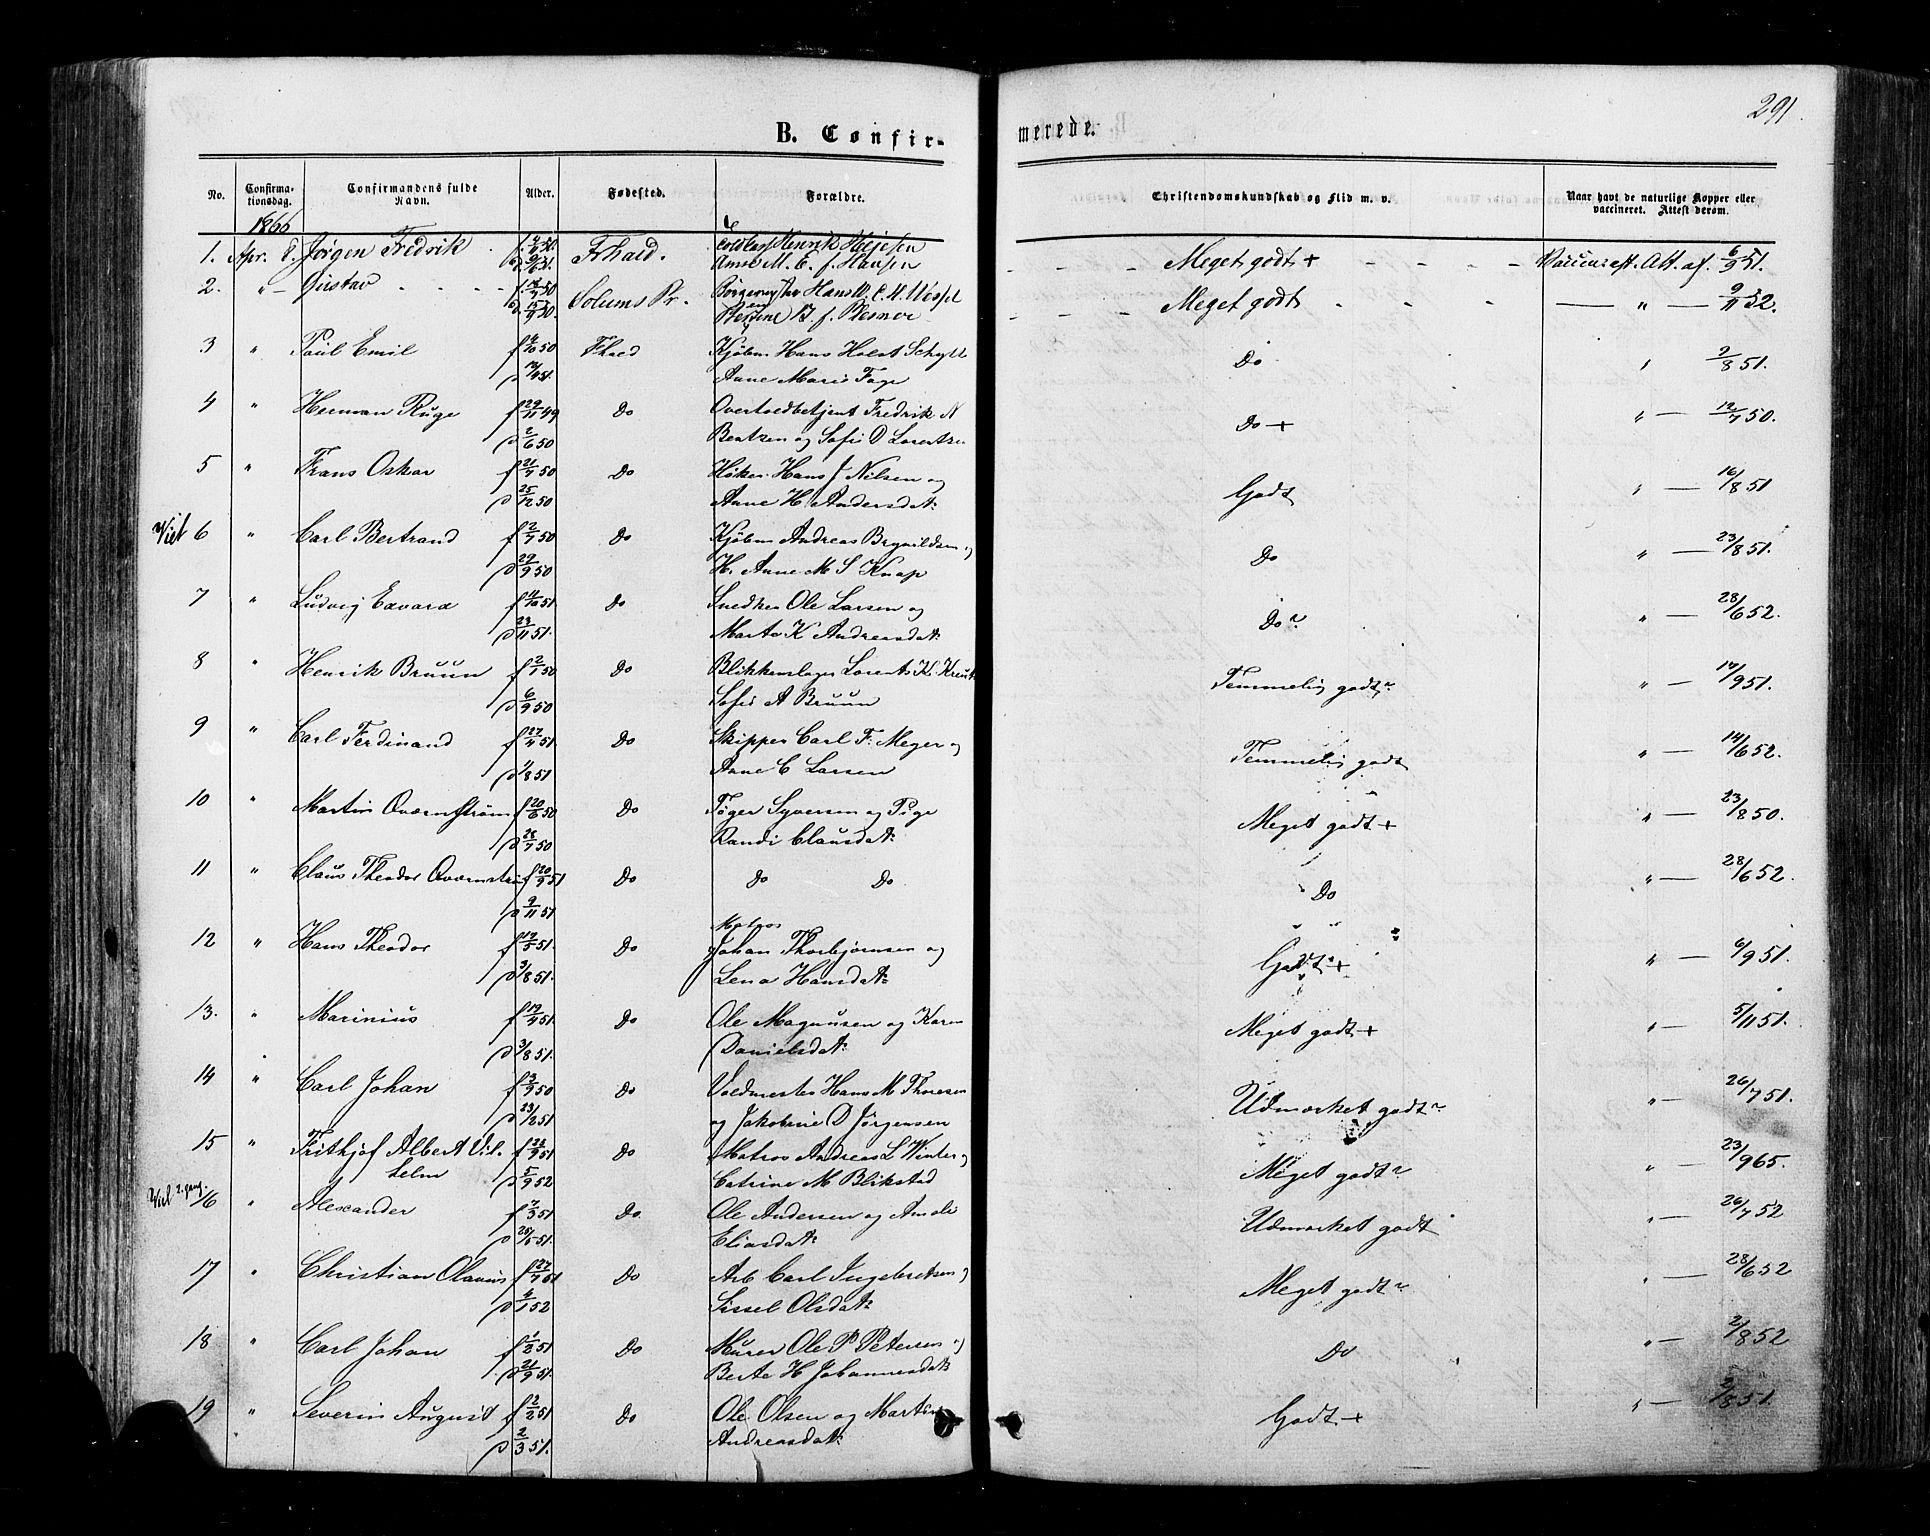 291.
B. Confirmerede.
No. Confirmationsdag. Confirmandens fulde Navn. Alder. Fødested. Forældre. Christendomskundskab og Flid m. v. Naar havt de naturlige Kopper eller vaccineret. Attest derom.
1866
1. Apr. 8. Jörgen Fredrik Frhald. Henrik Meget godt + 6/9 51.
Anne M. E. f. Hansen
2. " Gustav Solums Pr. Meget godt " — 9/11 52.
3 " Paul Emil f 50 Fhald Kjøbm Hans Holst Do " 2/8 51.
Anne Marie
4 " Herman Ruge f 29/11 49 Do Fredrik N Do + " — 12/7 50.
d 2/6 50 Berntzen og Sofie D Lorentzen
5 " Frans Oskar f 21/7 50 Do Høker Hans J Nilsen og Godt " — 16/8 51
d 25/12 50 Anne H Andersdat:
Viet 6 " Carl Bertrand f 2/7 50 Do Kjøbm Andreas Brynildsen og Do " — 23/8 51.
d 29/9 50 H. Anne M S Knap
7 " Ludvig Edvard f 11/10 51 Do Snedker Ole Larsen og Do " — 28/6 52.
d 23/11 51. Marte K Andreasdat:
8 " Henrik Bruun f 2/1 50 Do Blikkenslager Lorents K. Temmelig godt " — 17/9 51.
d 6/9 50 Sofie A Bruun
9 " Carl Ferdinand f 27/4 51. Do Skipper Carl F. Meyer og Temmelig godt " — 14/6 52.
d 1/8 51 Anne C Larsen
10 " Martin Qværnstrøm f 20/6 50 Do Tøger Syversen og Pige Meget godt + " — 23/8 50.
d 28/7 50 Randi Clausdat:
11 " Claus Theodor f 20/9 51 Do Do Do Do " — 28/6 52.
d 9/11 51
Matros
12 " Hans Theodor f 51. Do Johan Thorbjørnsen og Godt + " — 6/9 51.
d 3/8 51. Lena Hansdat:
13. " Marinius f 19/4 51. Do Ole Magnussen og Karen Meget godt + " — 5/11 51.
d 3/8 51. Danielsdat:
14 " Carl Johan f 3/9 50 Do Hans M Thoresen Udmærket godt " — 26/7 51.
d 23/2 51 og Jakobine D Jørgensen
15 " Frithjof Albert Vil- f 51 Do Matros Andreas L Winter og Meget godt " — 23/9 65.
helm d 5/9 52 Catrine M Blikstad
Viet 2. gang. 16 " Alexander f 51 Do Ole Andersen og Amalie Udmærket godt " — 26/7 52
51. Eliasdat:
17 " Christian Olavus f 27/7 51 Do Arb Carl Ingebretsen og Meget godt " — 28/6 52
d 4/1 52 Sissel Olsdat:
18 " Carl Johan f 1/2 51 Do Murer Ole P Petersen og Do " — 2/8 52
d 21/9 51. Berte H Johannesdat
19 " Severin August f 2/2 51 Do Ole Olsen og Martine Godt + " — 2/8 51.
d 2/3 51. Andreasdat: